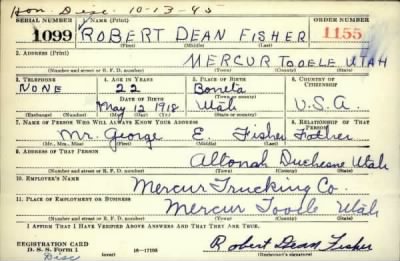 Hon. Disc. 10-13-45
SERIAL NUMBER 1. NAME (Print) ORDER NUMBER
1099 ROBERT DEAN FISHER 1155
(First) (Middle) (Last)
2. ADDRESS (Print)
MERCUR TOOELE UTAH
(Number and street or R. F. D. number) (Town) (County) (State)
3. TELEPHONE 4. AGE IN YEARS 5. PLACE OF BIRTH 6. COUNTRY OF CITIZENSHIP
NONE 22 Boneta
DATE OF BIRTH (Town or county)
May 12 1918 Utah U.S.A.
(Exchange) (Number) (Mo.) (Day) (Yr.) (State or country)
7. NAME OF PERSON WHO WILL ALWAYS KNOW YOUR ADDRESS 8. RELATIONSHIP OF THAT PERSON
Mr. George E. Fisher Father
(Mr., Mrs., Miss) (First) (Middle) (Last)
9. ADDRESS OF THAT PERSON
Altonah Duchesne Utah
(Number and street or R. F. D. number) (Town) (County) (State)
10. EMPLOYER'S NAME
Mercur Trucking Co.
11. PLACE OF EMPLOYMENT OR BUSINESS
Mercur Tooele Utah
(Number and street or R. F. D. number) (Town) (County) (State)
I AFFIRM THAT I HAVE VERIFIED ABOVE ANSWERS AND THAT THEY ARE TRUE.
REGISTRATION CARD
D. S. S. Form 1 16-17105 Robert Dean Fisher
Disc (Registrant's signature)